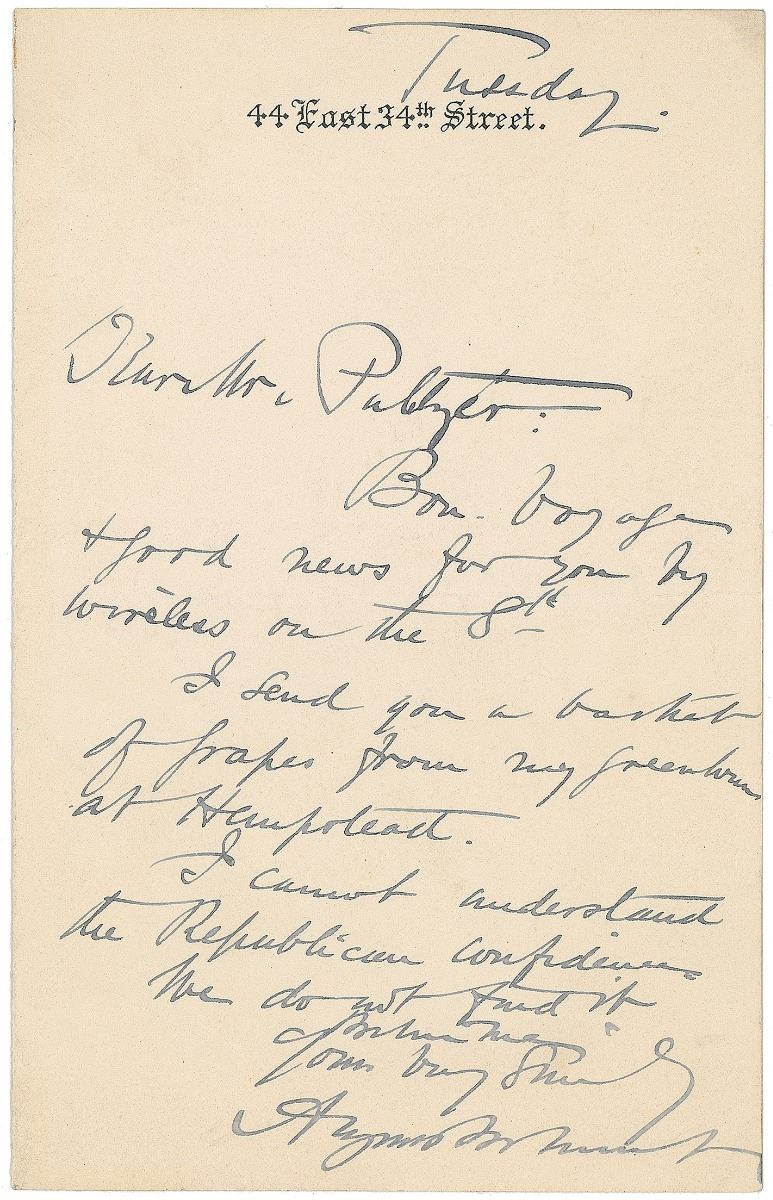 Tuesday.
44 East 34th Street.
Dear Mr. Pulitzer:
Bon-Voyage
& good news for you by
wireless on the 8th
I send you a basket
of grapes from my greenhouse
at Hempstead.
I cannot understand
the Republican confidence
We do not find it
Yours very Sincerely
August Belmont